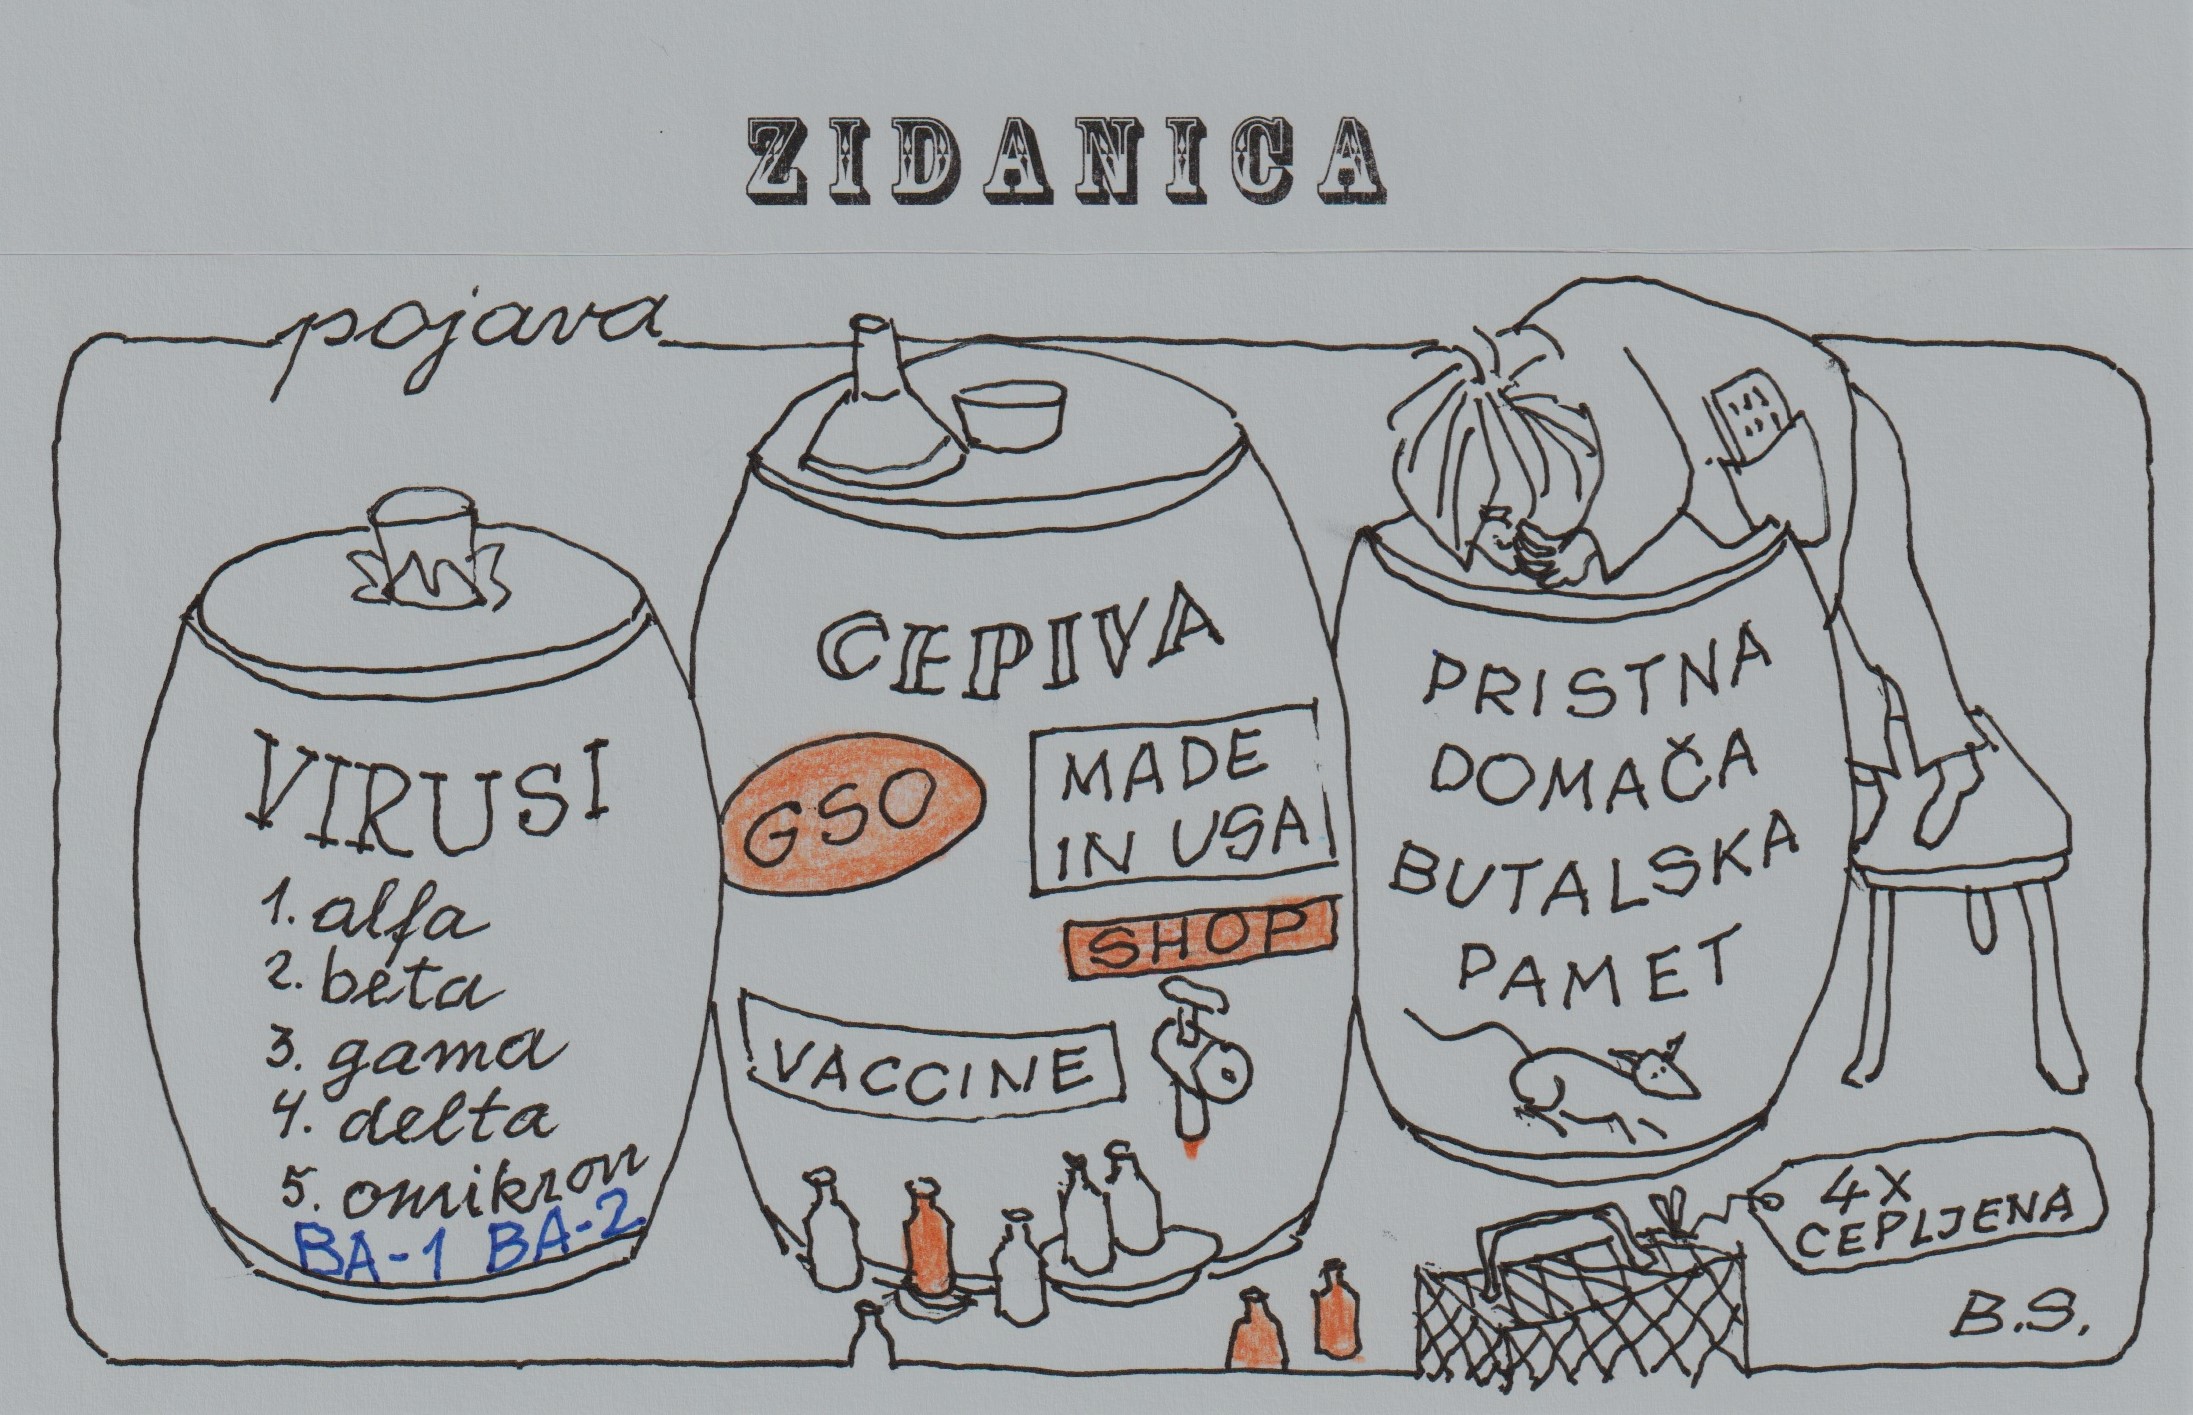 ZIDANICA
pojava
VIRUSI
1. alfa
2. beta
3. gama
4. delta
5. omikron
BA-1 BA-2
CEPIVA
GSO
MADE
IN USA
SHOP
VACCINE
PRISTNA
DOMAČA
BUTALSKA
PAMET
4X
CEPLJENA
B.S.